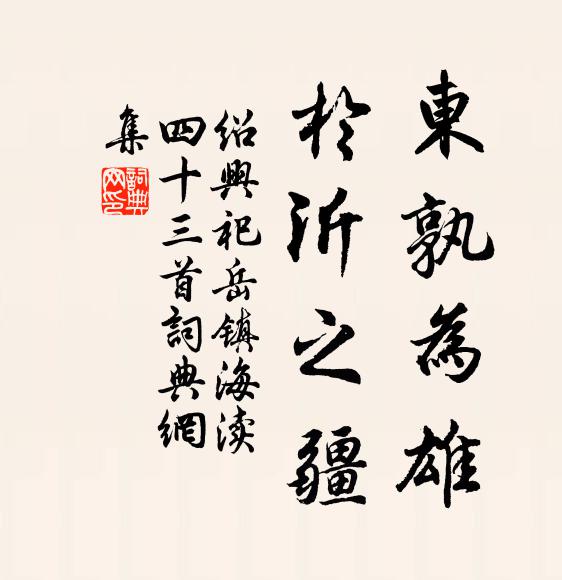 東孰為雄
於沂之疆
绍興祀岳镇海渎
四十三首詞典網
集
詞典網印